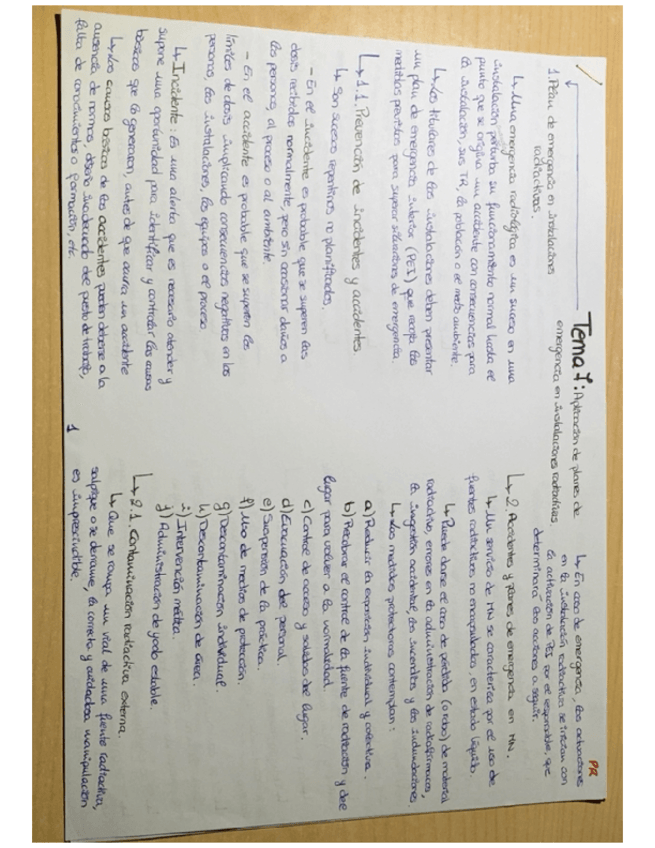 PR
Tema 7: Aplicación de planes de
emergencia en instalaciones radiactivas.
1. Plan de emergencia en instalaciones
radiactivas.
↳ Una emergencia radiológica es un suceso en una
instalación perturba su funcionamiento normal hasta el
punto que se origina un accidente con consecuencias para
la instalación, sus TR, la población o el medio ambiente.
↳ Los titulares de las instalaciones deben presentar
un plan de emergencia interior (PEI) que recoja las
medidas previstas para superar situaciones de emergencia
↳ 1.1. Prevención de incidentes y accidentes
↳ Son sucesos repentinos no planificados.
- En el incidente es probable que se superen las
dosis recibidas normalmente, pero sin ocasionar daños a
las personas, al proceso o al ambiente.
- En el accidente es probable que se superen los
límites de dosis implicando consecuencias negativas en las
personas, las instalaciones, los equipos o el proceso
↳ Incidente: Es una alerta que es necesario atender y
supone una oportunidad para identificar y controlar las causas
básicas que lo generaron, antes de que ocurra un accidente
↳ Las causas básicas de los accidentes pueden deberse a la
ausencia de normas, diseño inadecuado del puesto de trabajo,
falta de conocimientos o formación, etc.
1
↳ En caso de emergencia, las actuaciones
en la instalación radiactiva se inician con
la activación de PEI por el responsable, que
determinará las acciones a seguir.
↳ 2. Accidentes y planes de emergencia en MN.
↳ Un servicio de MN se caracteriza por el uso de
fuentes radiactivas no encapsuladas, en estado líquido.
↳ Puede darse el caso de pérdida (o robo) de material
radiactivo, errores en la administración de radiofármacos,
la ingestión accidental, los incendios y las inundaciones.
↳ Las medidas protectoras contemplan:
a) Reducir la exposición individual y colectiva.
b) Recobrar el control de la fuente de radiación y del
lugar para volver a la normalidad
c) Control de acceso y salidas del lugar.
d) Evacuación del personal.
e) Suspensión de la práctica.
f) Uso de medios de protección.
g) Descontaminación individual.
h) Descontaminación de área.
i) Intervención médica.
j) Administración de yodo estable.
↳ 2.1. Contaminación radiactiva externa.
↳ Que se rompa un vial de una fuente radiactiva,
salpique o se derrame, la correcta y cuidadosa manipulación
es imprescindible.